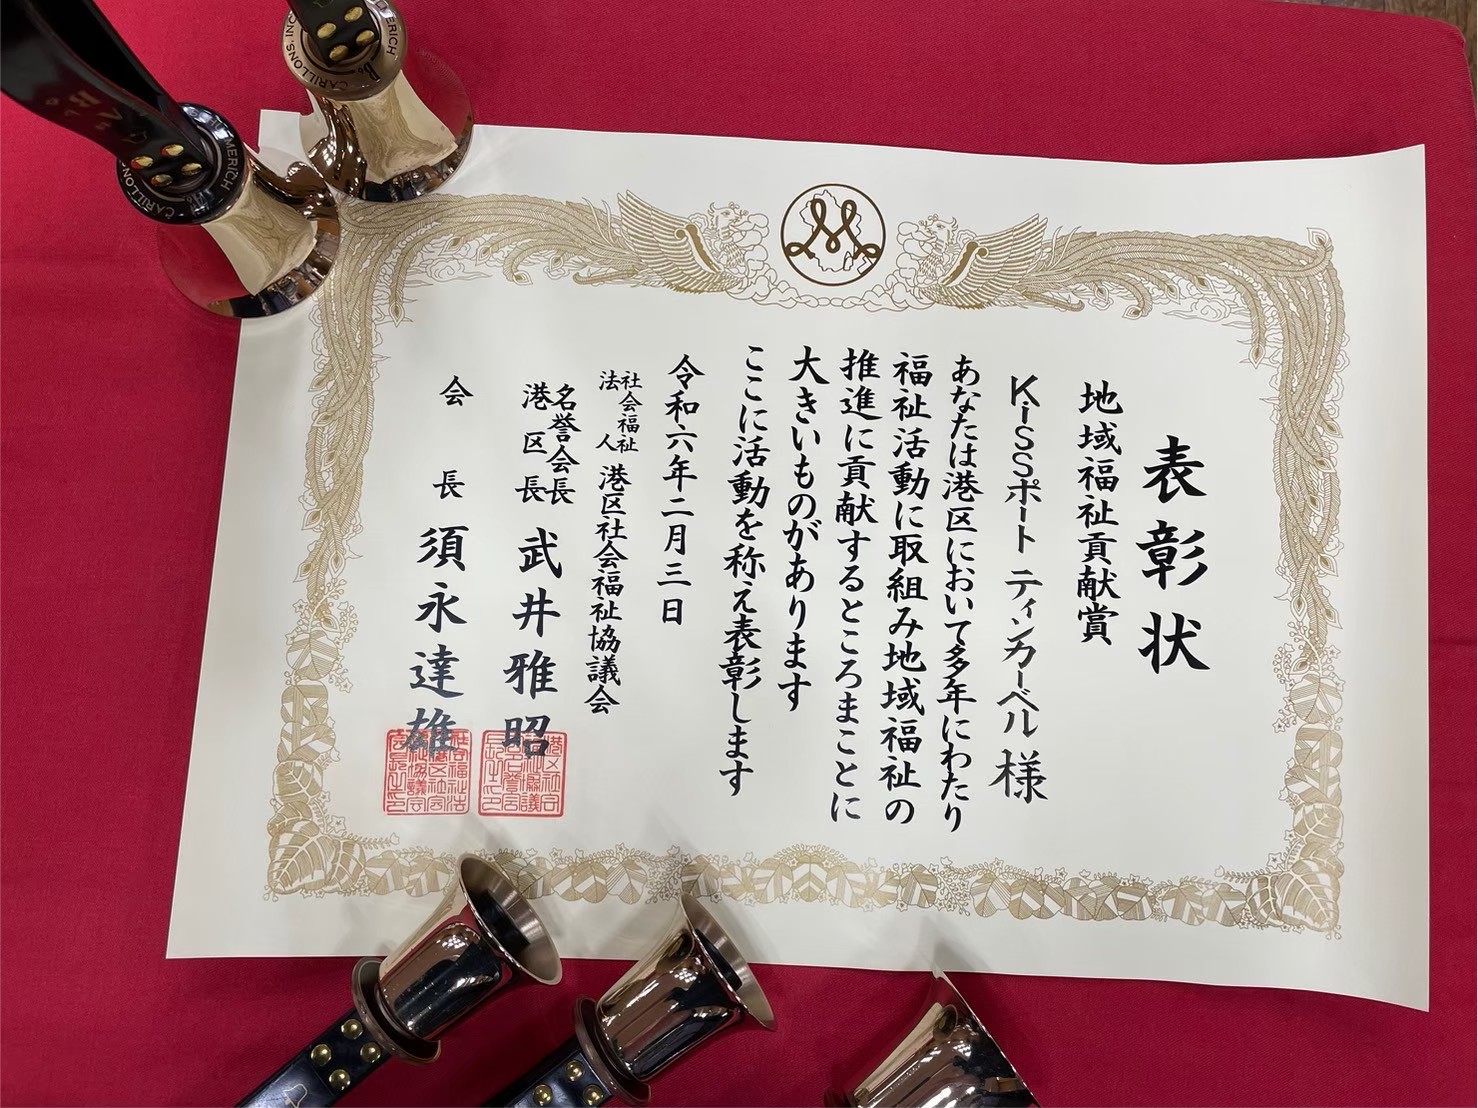 表彰状
地域福祉貢献賞
Kissポート ティンカーベル 様
あなたは港区において多年にわたり
福祉活動に取組み地域福祉の
推進に貢献するところまことに
大きいものがあります
ここに活動を称え表彰します
令和六年二月三日
社会福祉法人 港区社会福祉協議会
名誉会長
港区長 武井雅昭
会長 須永達雄
CARILLONS, INC.
CARILLONS